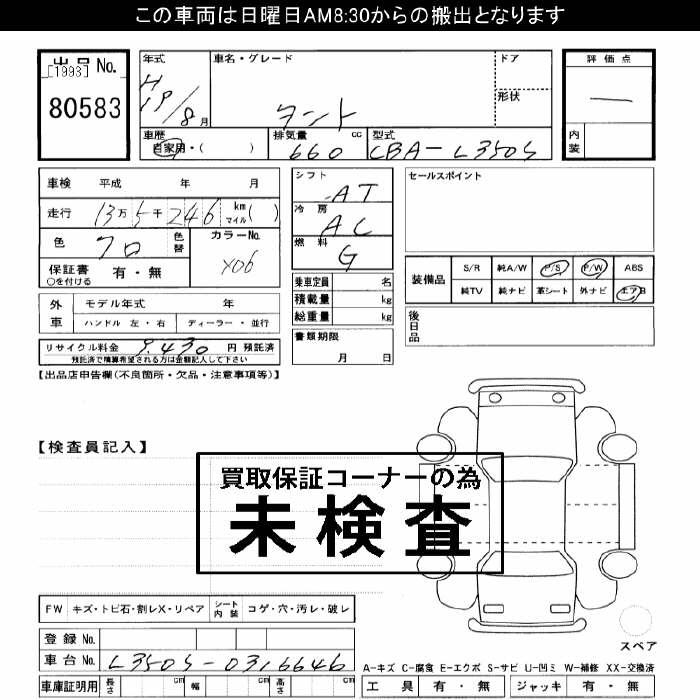 この車両は日曜日AM8:30からの搬出となります
出品 No.
[1993]
80583
年式 H19/8月
車名・グレード タント
ドア
形状
評価点 —
内装
車歴 自家用・( )
排気量 660 cc
型式 CBA-L350S
車検 平成 年 月
走行 13万5千246 km マイル( )
色 クロ 色替
カラーNo. X06
保証書 有・無
○を付ける
外車 モデル年式 年
ハンドル 左・右 ディーラー・並行
リサイクル料金 9,430 円 預託済
預託済で精算希望される方は金額記入して下さい
シフト AT
冷房 AC
燃料 G
乗車定員 名
積載量 kg
総重量 kg
書類期限
月 日
セールスポイント
装備品 S/R 純A/W P/S P/W ABS
純TV 純ナビ 革シート 外ナビ エアB
後日品
【出品店申告欄(不良箇所・欠品・注意事項等)】
【検査員記入】
買取保証コーナーの為
未検査
FW キズ・トビ石・割レX・リペア シート内装 コゲ・穴・汚レ・破レ
登録No.
車台No. L350S-0316646
車庫証明用 長さ cm 幅 cm 高さ cm
スペア
A-キズ C-腐食 E-エクボ S-サビ U-凹ミ W-補修 XX-交換済
工具 有・無 ジャッキ 有・無